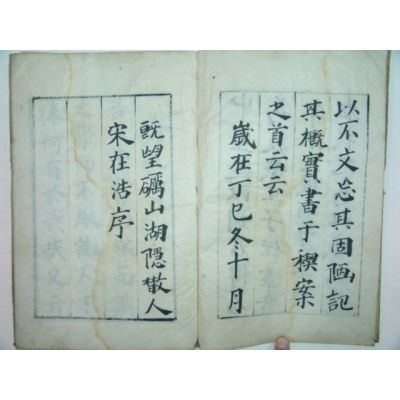 以不文忘其固陋記
其概實書于稧案
之首云云
歲在丁巳冬十月
旣望礪山湖隱樵人
宋在浩序